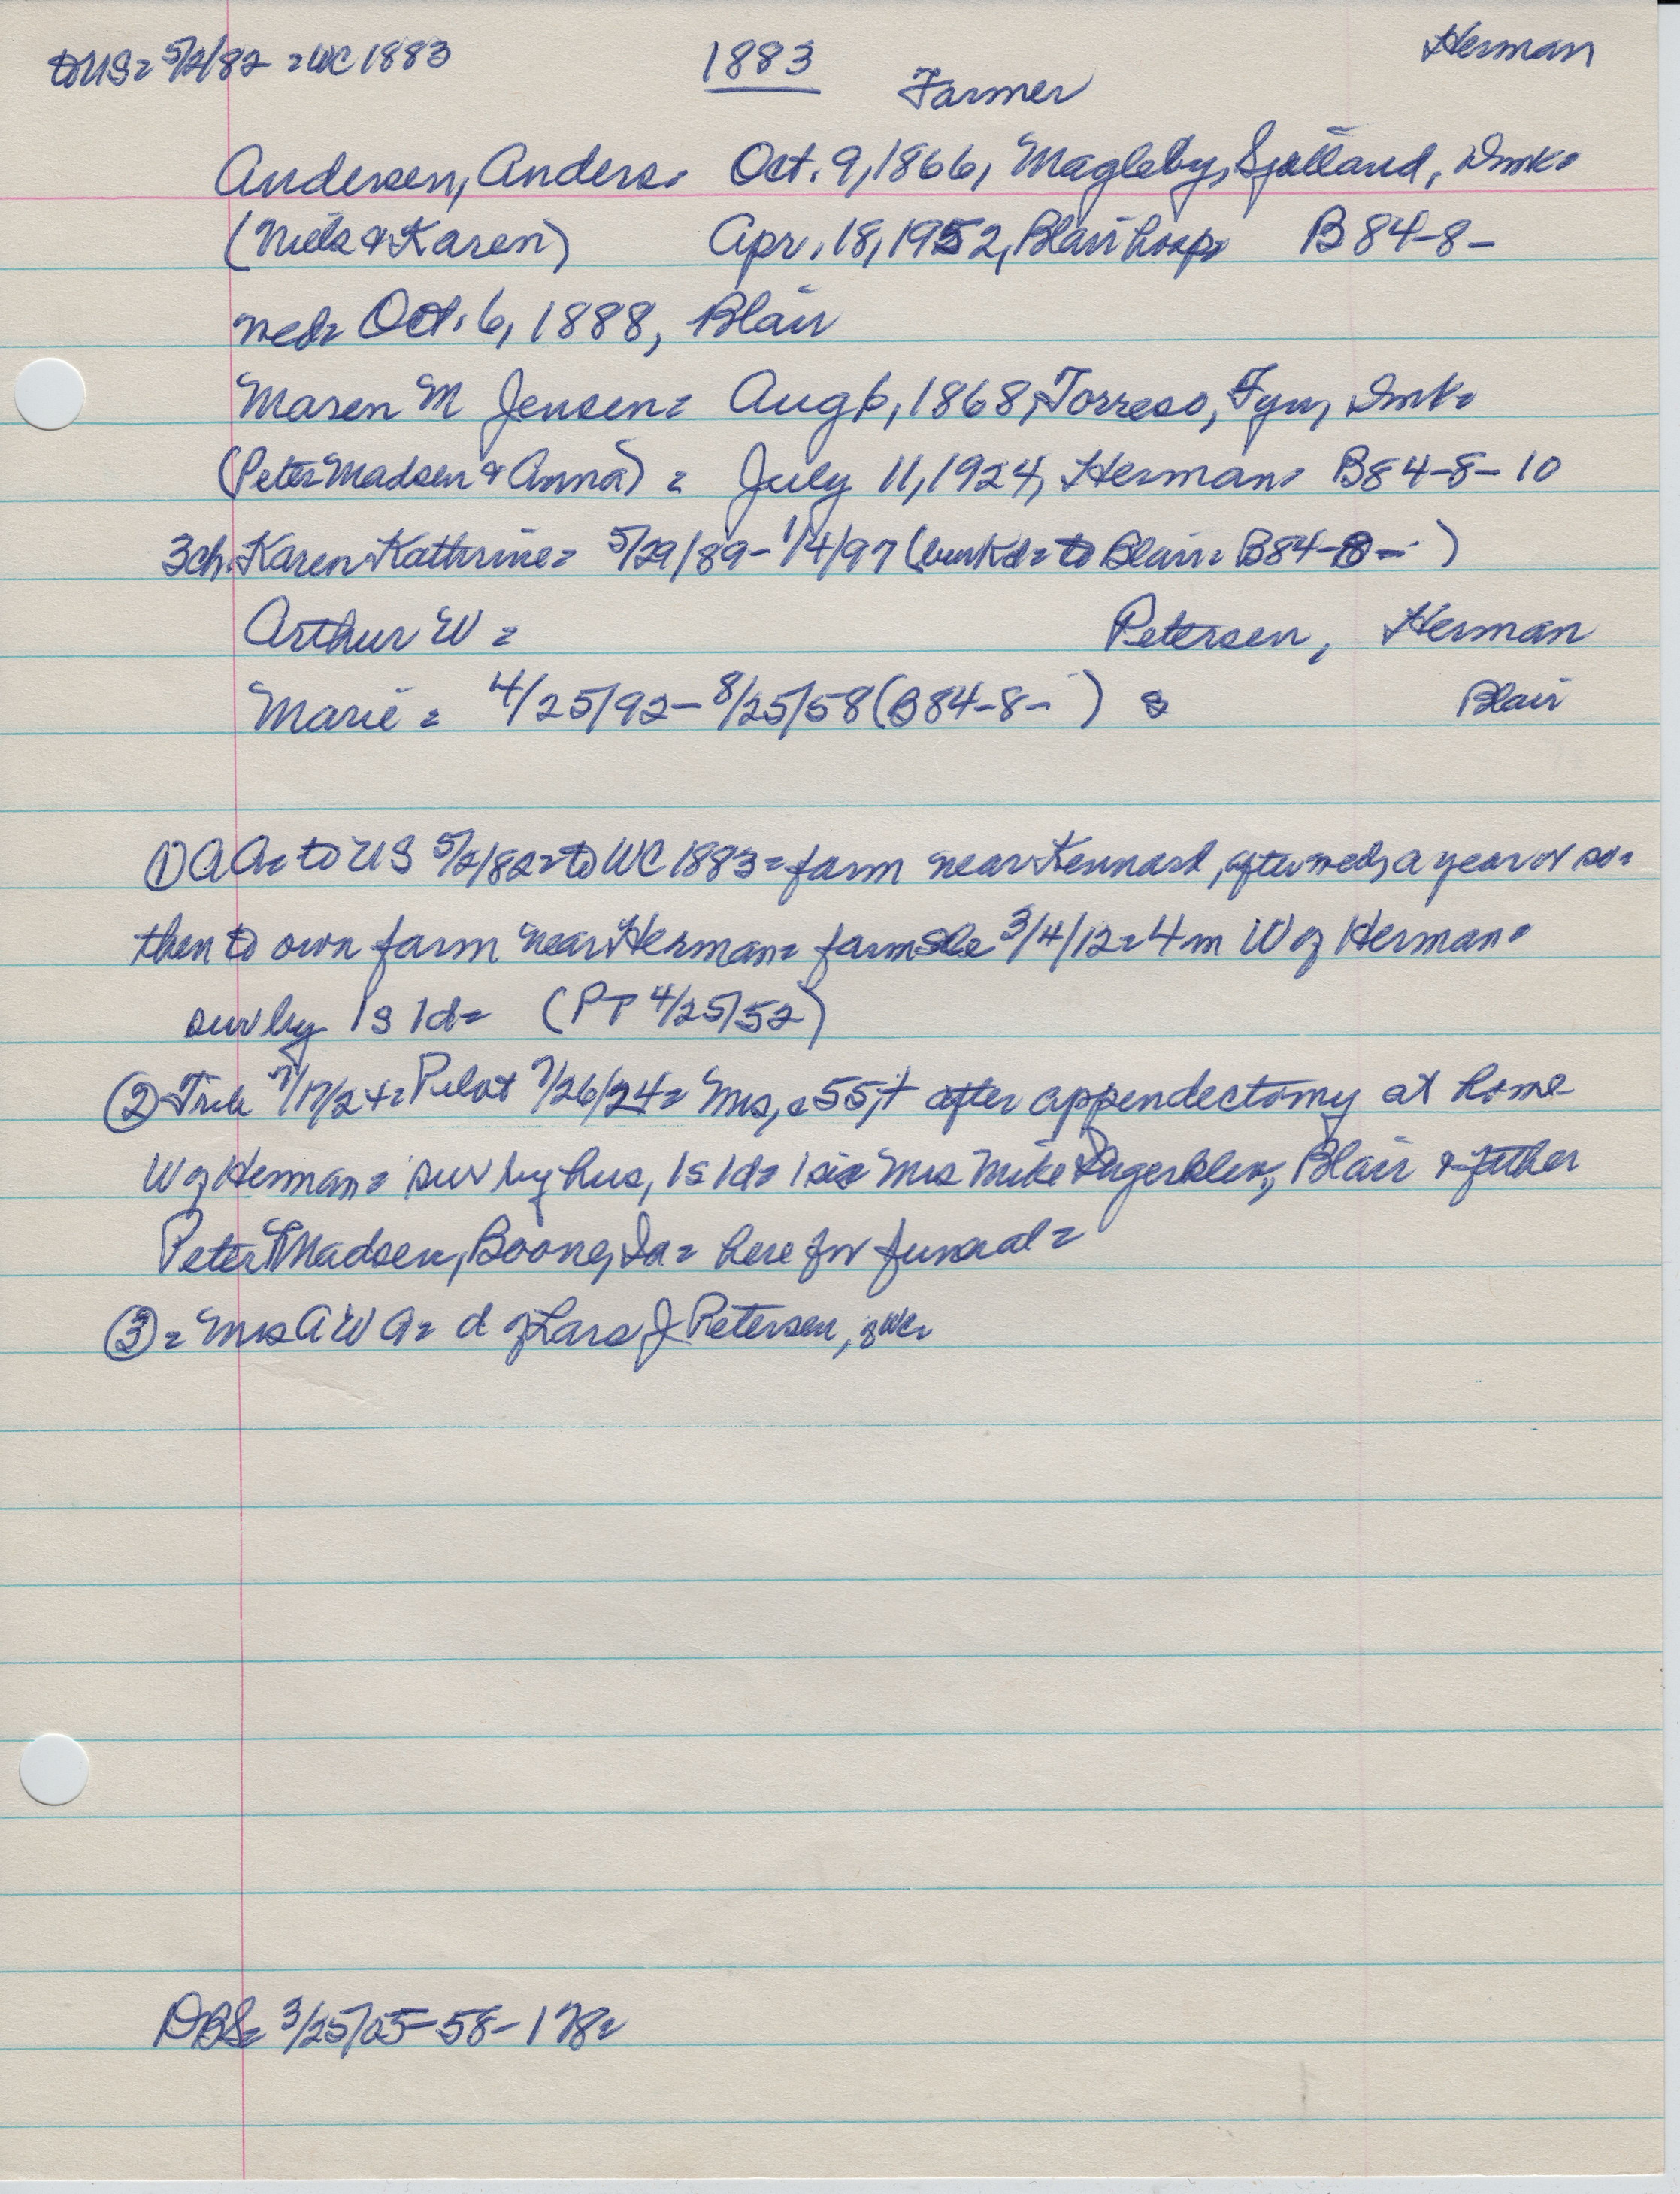 to US= 5/2/82 = WC 1883 1883 Herman
Farmer
Andersen, Anders= Oct. 9, 1866, Magleby, Sjælland, Dmk=
(Niels & Karen) Apr. 18, 1952, Blair hosp= B 84-8-
wed= Oct. 6, 1888, Blair
Maren M Jensen= Aug 6, 1868, Torreso, Fyn, Dmk=
(Peter Madsen & Anna) = July 11, 1924, Herman= B84-8-10
3ch. Karen Kathrine= 5/29/89-1/4/97 ( to Blair= B84-8- )
Arthur W = Petersen, Herman
Marie = 4/25/92-8/25/58 (B84-8- ) s Blair
① AA= to US 5/2/82= to WC 1883= farm near Kennard, after wed, a year or so=
then to own farm near Herman= farm sale 3/4/12=4m W of Herman=
sur by 1s 1d= (PT 4/25/52)
② Trib 7/17/24= Pilot 7/26/24= Mrs, a55,+ after appendectomy at home
W of Herman= sur by hus, 1s 1d= 1sis Mrs Mike Blair & father
Peter Madsen, Boone, Ia= here for funeral=
③ = Mrs A W A= d of Lars J Petersen, s WC=
DBS= 3/25/05-58-178=